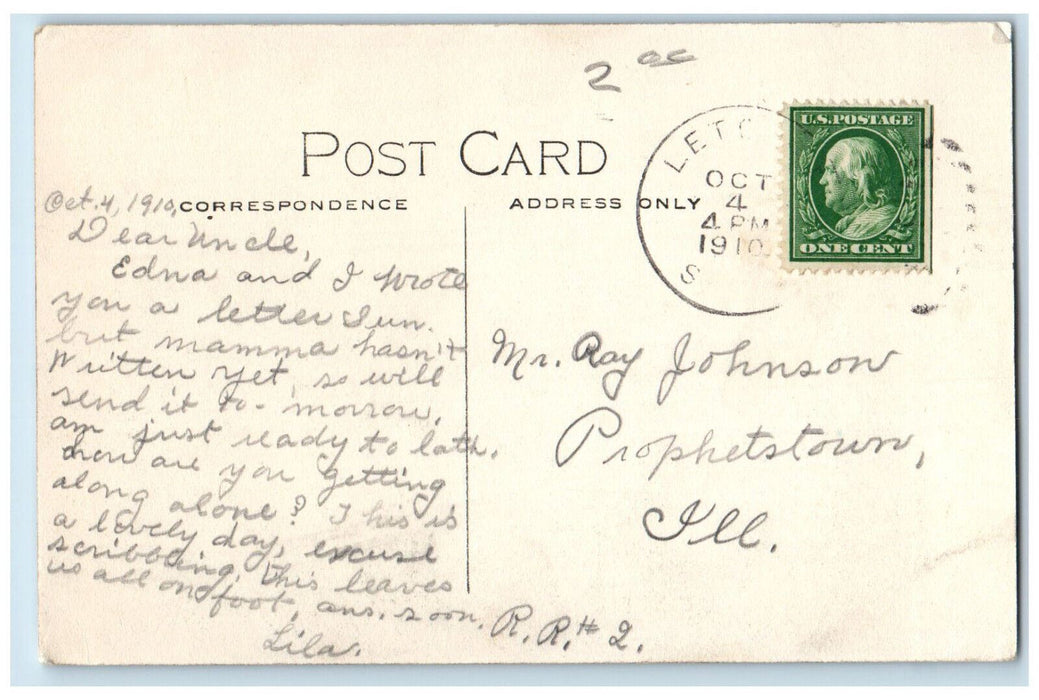 2 00
POST CARD
LETC
OCT
4
4 PM
1910
S
U.S. POSTAGE
ONE CENT
CORRESPONDENCE
ADDRESS ONLY
Oct. 4, 1910,
Dear Uncle,
Edna and I wrote
you a letter Sun.
but mamma hasn't
written yet, so will
send it to-morrow.
am just ready to
how are you getting
along alone? This is
a lovely day, excuse
scribbling, this leaves
us all on foot, ans. soon.
Lila.
Mr. Ray Johnson
Prophetstown,
Ill.
R. R. # 2.